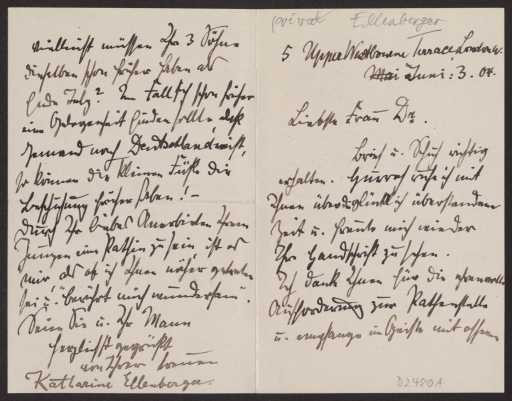 privat Ellenberger
5 Upper Westbourne Terrace, London W.
Mai Juni: 3. 04.
Liebste Frau Dr.
Brief u. Scheck richtig
erhalten. Hurrah rufe ich mit
Ihnen über glücklich überstandene
Zeit u. freute mich wieder
Ihre Handschrift zu sehen.
Ich danke Ihnen für die ehrenvolle
Aufforderung zur Pathenstelle
u. empfange im Geiste mit offenen
D2480A
vielleicht müssen Ihre 3 Söhne
dieselben schon früher haben als
Ende July? Im Fall sich schon früher
eine Gelegenheit finden sollte, daß
Jemand nach Deutschland reist,
so können die kleinen Füße die
Beschuhung früher haben! –
Durch Ihr liebes Anerbieten Ihrem
Jungen eine Pathin zu sein ist es
mir als ob ich Ihnen näher getreten
sei u. berührt mich wundersam.
Seien Sie u. Ihr Mann
herzlichst gegrüßt
von Ihrer
Katharine Ellenberger.